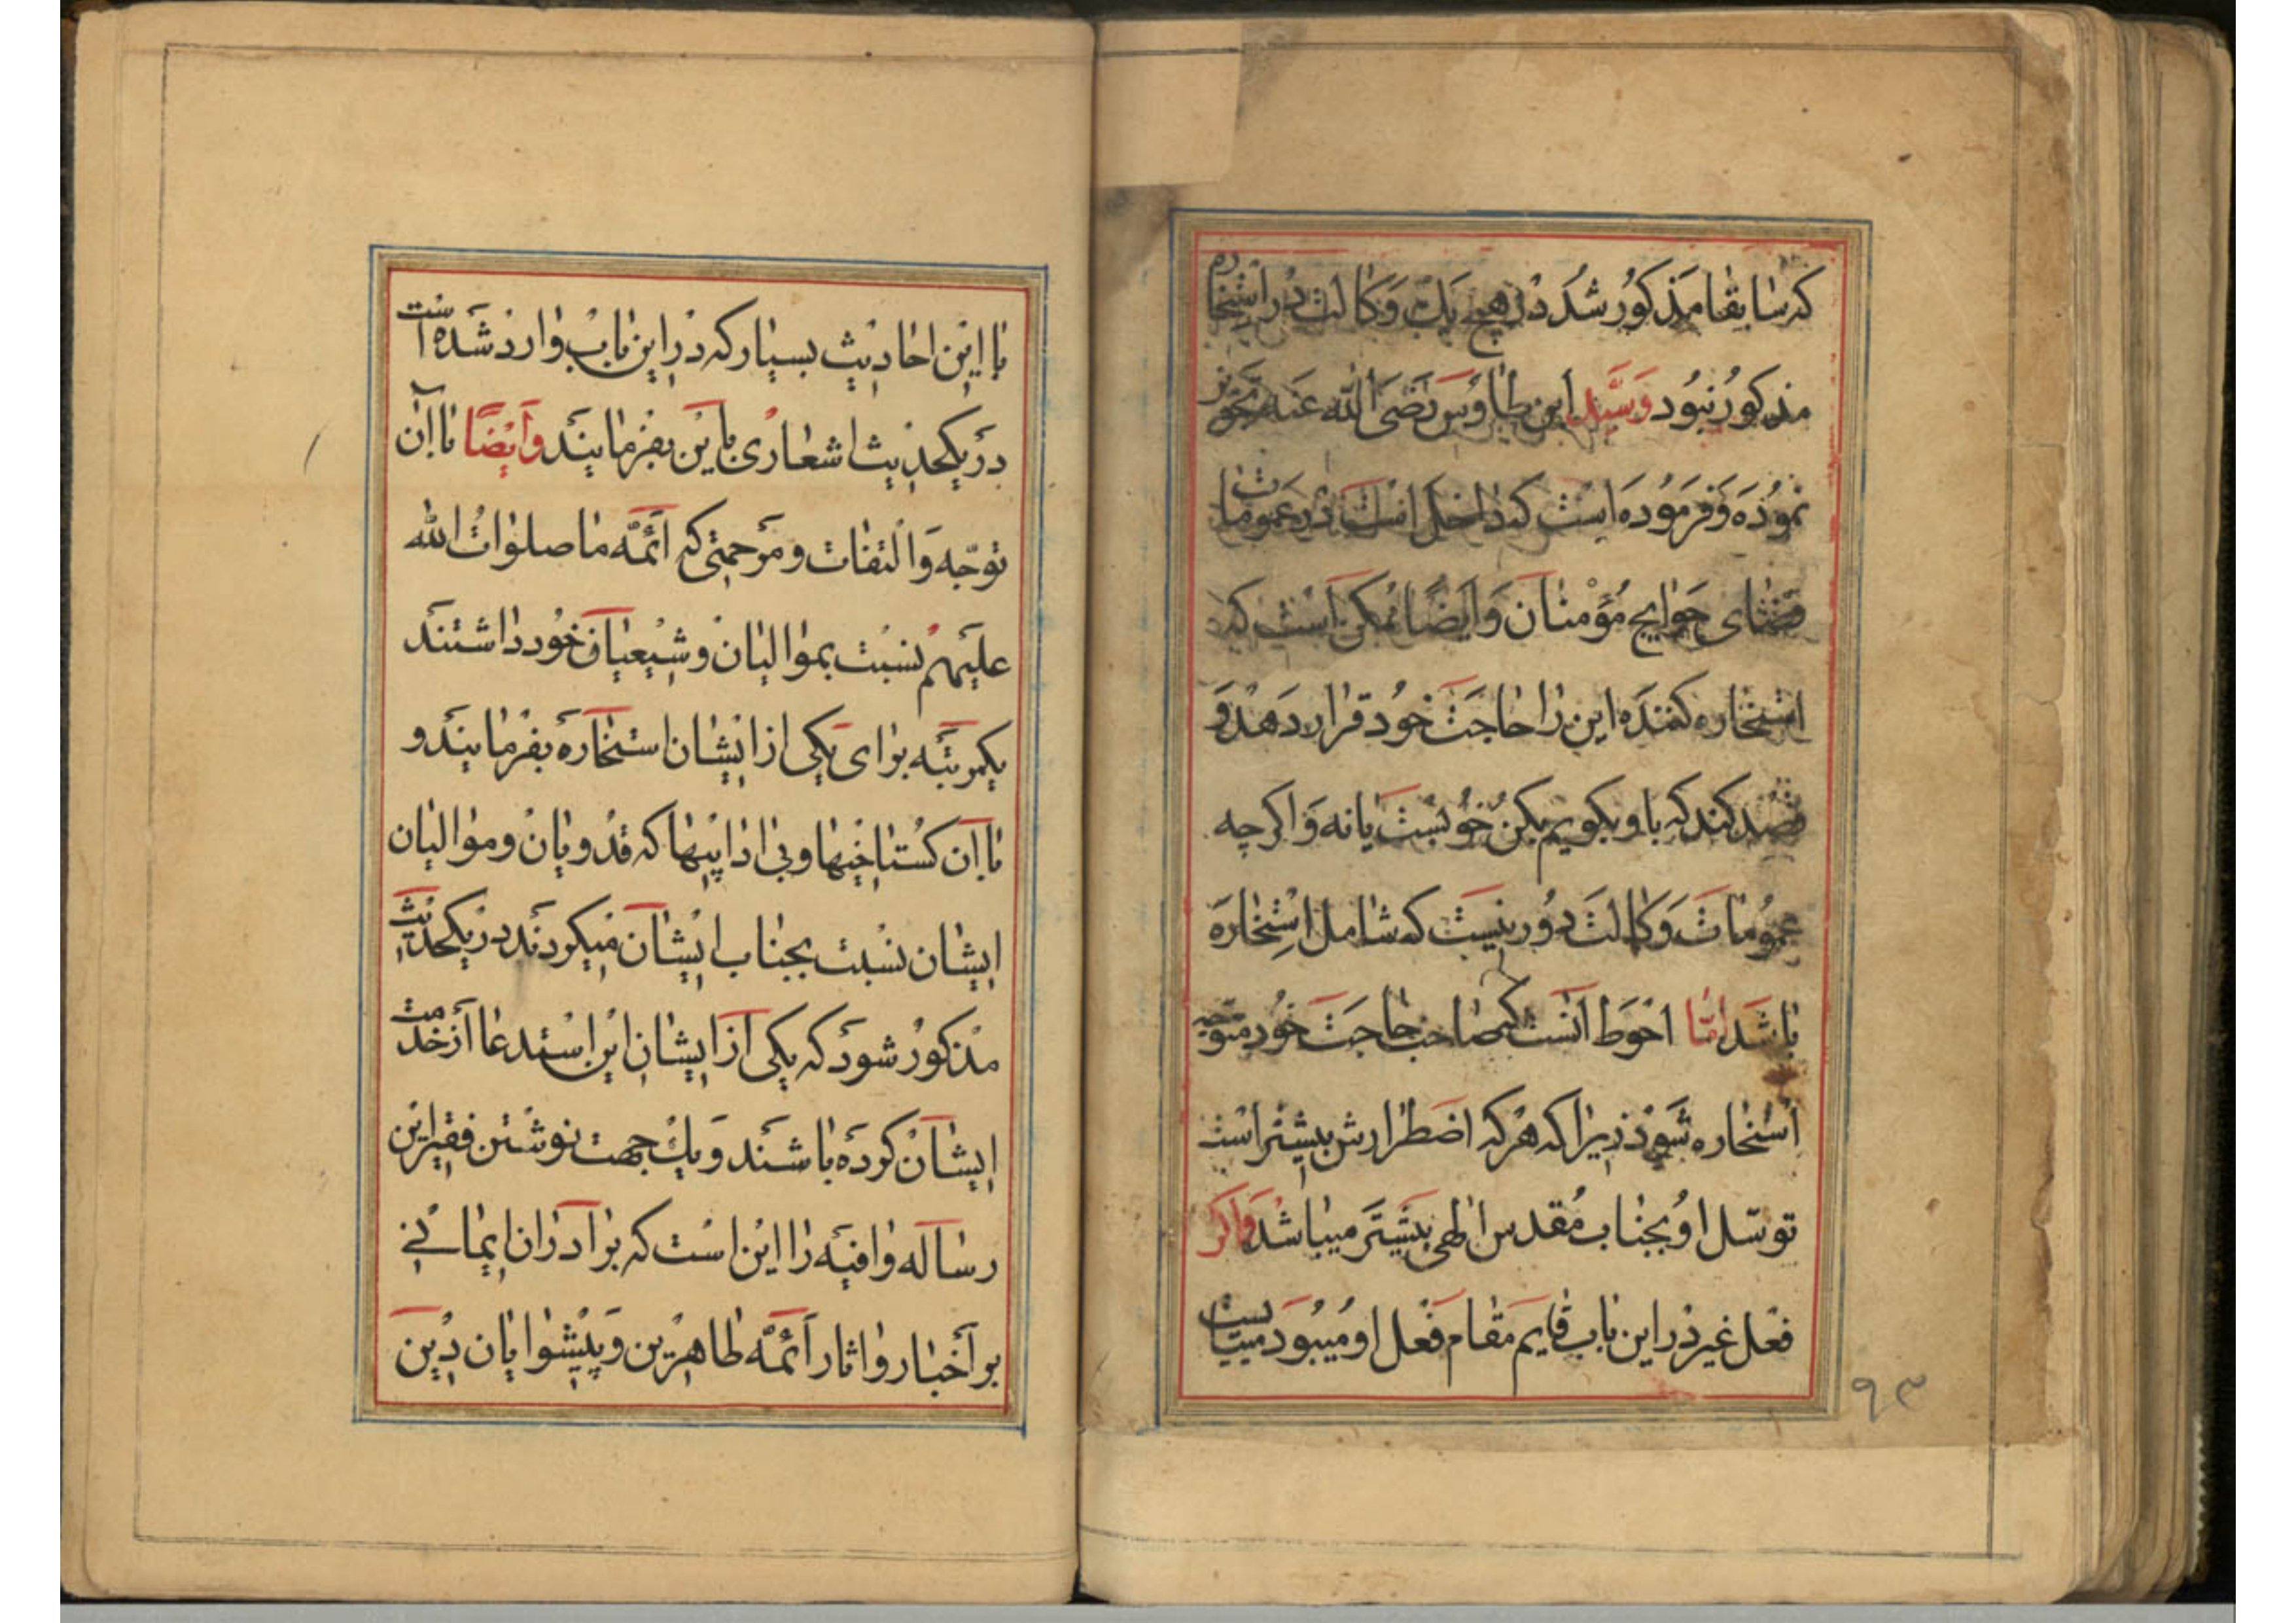 که سابقا مذکور شد در هیچ یک وکالت در استخاره
مذکور نبود و سید ابن طاوس رضی الله عنه تجویز
نموده و فرموده است که داخل است در عمومات
قضای حوایج مؤمنان و ایضا ممکن است که
استخاره کننده این را حاجت خود قرار دهد و
قصد کند که باو بکویم بکن خوبست یا نه و اکرچه
عمومات وکالت دور نیست که شامل استخاره
باشد امّا احوط آنست که صاحب حاجت خود متوجه
استخاره شود زیرا که هر که اضطرارش بیشتر است
توسّل او بجناب مقدس الهی بیشتر میباشد و اکر
فعل غیر در این باب قایم مقام فعل او میبود میبایست
۹۳
با این احادیث بسیار که در این باب وارد شده است
در یکحدیث اشعاری باین بفرمایند و ایضا با آن
توجّه و التفات و مرحمتی که ائمّه ما صلوات الله
علیهم نسبت بموالیان و شیعیان خود داشتند
یکمرتبه برای یکی از ایشان استخاره بفرمایند و
با آن کستاخیها و بی ادابیها که قدویان و موالیان
ایشان نسبت بجناب ایشان میکردند در یکحدیث
مذکور شود که یکی از ایشان این استدعا از خدمت
ایشان کرده باشند و یک جهت نوشتن فقیر این
رساله وافیه را این است که برادران ایمانی
بر اخبار و اثار ائمّه طاهرین و پیشوایان دین